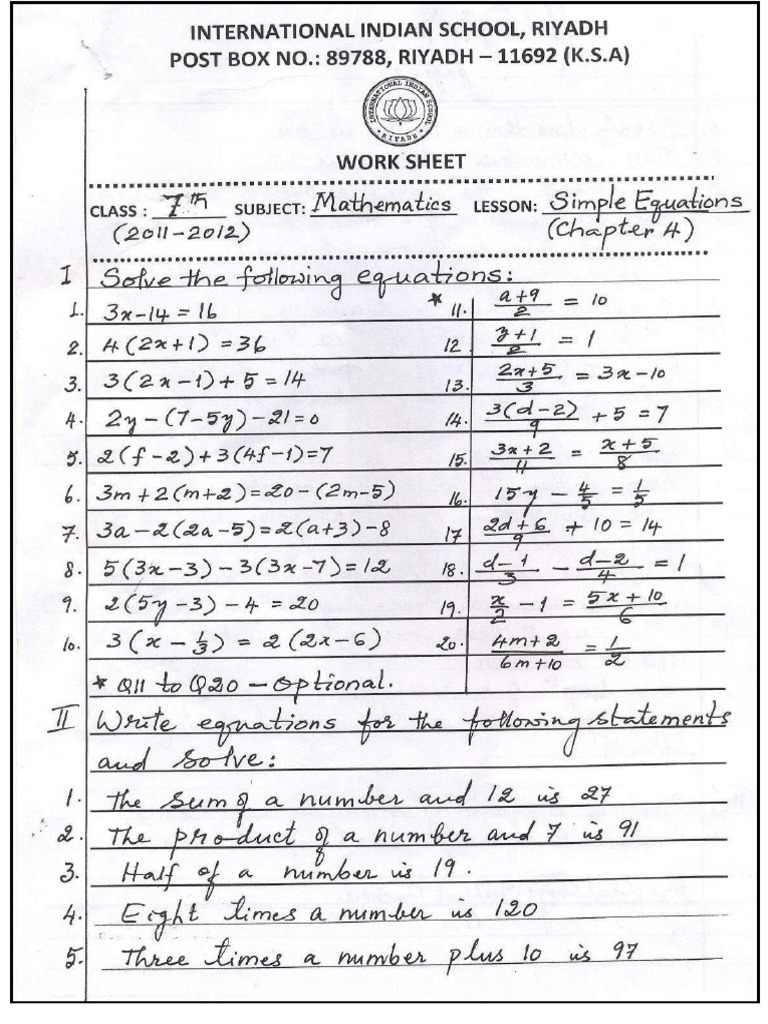 INTERNATIONAL INDIAN SCHOOL, RIYADH
POST BOX NO.: 89788, RIYADH – 11692 (K.S.A)
INTERNATIONAL INDIAN SCHOOL
RIYADH
WORK SHEET
CLASS : 7th SUBJECT: Mathematics LESSON: Simple Equations
(2011-2012) (Chapter 4)
I Solve the following equations:
1. 3x-14 = 16
2. 4(2x+1) = 36
3. 3(2x-1)+5 = 14
4. 2y-(7-5y)-21=0
5. 2(f-2)+3(4f-1)=7
6. 3m+2(m+2)=20-(2m-5)
7. 3a-2(2a-5)=2(a+3)-8
8. 5(3x-3)-3(3x-7)=12
9. 2(5y-3)-4=20
10. 3(x-1/3) = 2(2x-6)
* Q11 to Q20 – Optional.
* 11. (a+9)/2 = 10
12 (y+1)/2 = 1
13. (2x+5)/3 = 3x-10
14. 3(d-2)/9 + 5 = 7
15. (3x+2)/11 = (x+5)/8
16. 15y - 4/5 = 1/5
17 (2d+6)/9 + 10 = 14
18. (d-1)/3 - (d-2)/4 = 1
19. x/2 - 1 = (5x+10)/6
20. (4m+2)/(6m+10) = 1/2
II Write equations for the following statements
and solve:
1. The sum of a number and 12 is 27
2. The product of a number and 7 is 91
3. Half of a number is 19.
4. Eight times a number is 120
5. Three times a number plus 10 is 97